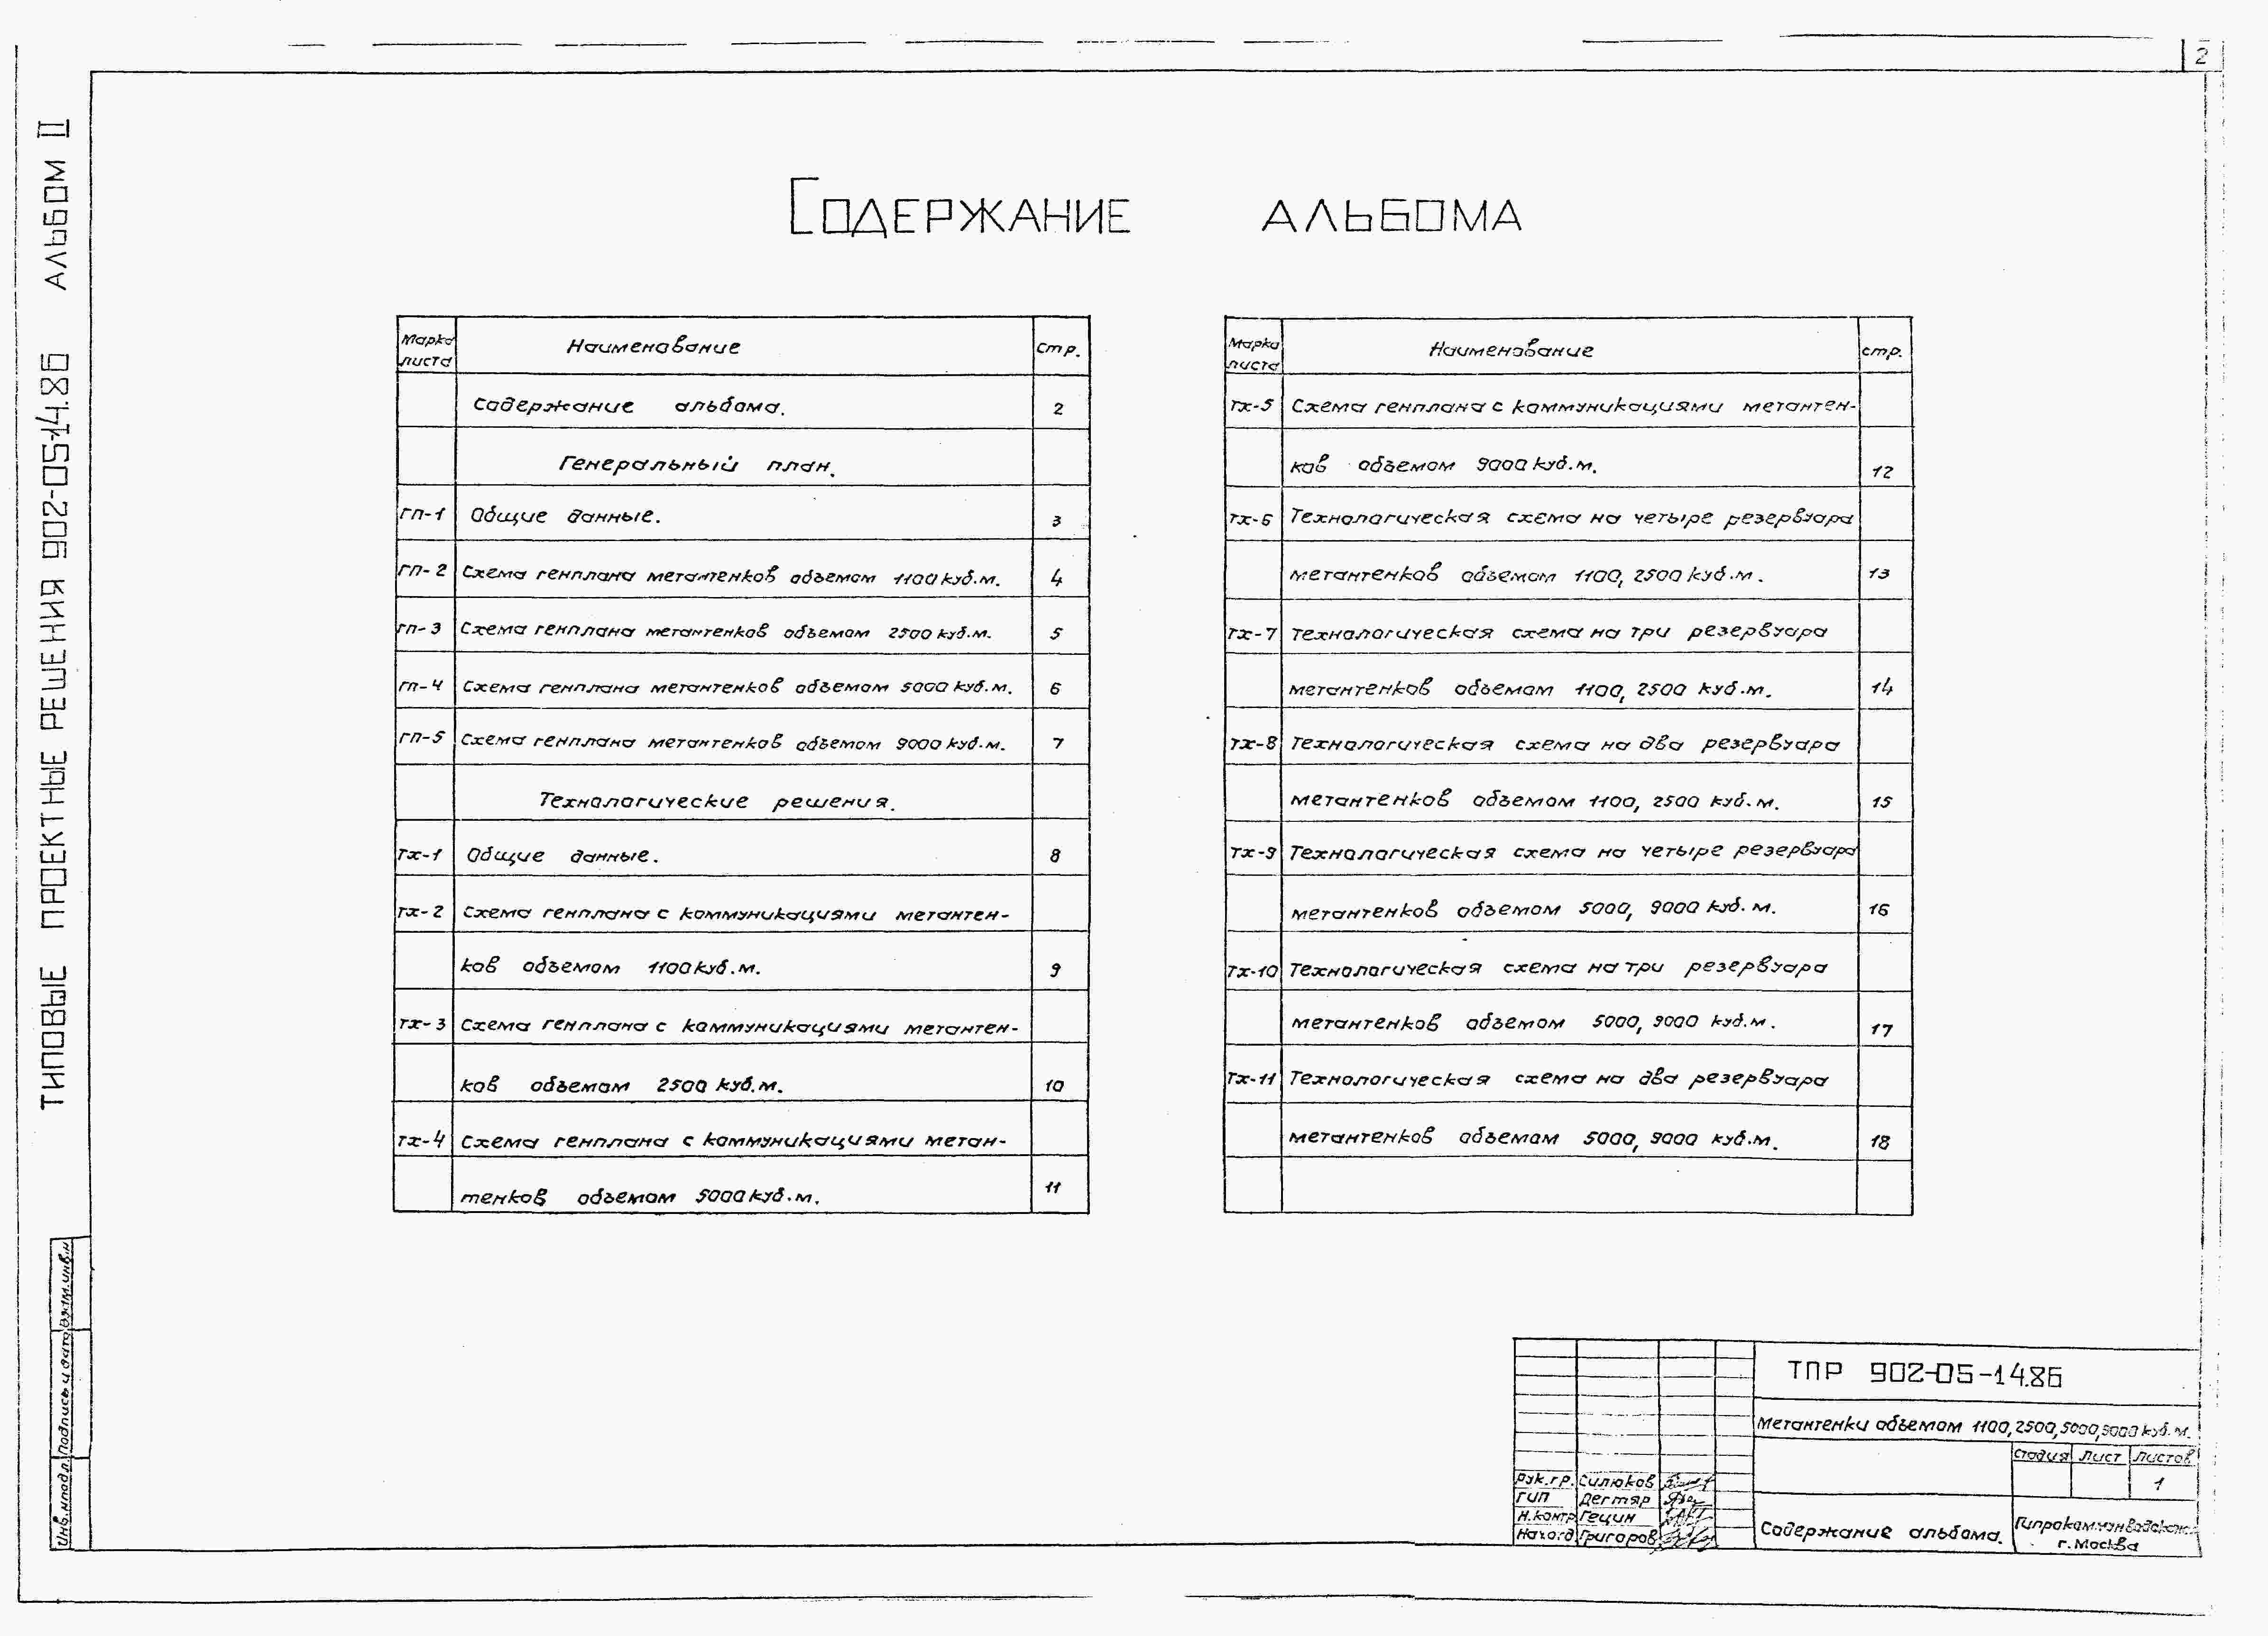 2
ТИПОВЫЕ ПРОЕКТНЫЕ РЕШЕНИЯ 902-05-14.86 АЛЬБОМ II
СОДЕРЖАНИЕ АЛЬБОМА
Марка листа Наименование Стр.
Содержание альбома. 2
Генеральный план.
ГП-1 Общие данные. 3
ГП-2 Схема генплана метантенков объемом 1100 куб.м. 4
ГП-3 Схема генплана метантенков объемом 2500 куб.м. 5
ГП-4 Схема генплана метантенков объемом 5000 куб.м. 6
ГП-5 Схема генплана метантенков объемом 9000 куб.м. 7
Технологические решения.
ТХ-1 Общие данные. 8
ТХ-2 Схема генплана с коммуникациями метантен-
ков объемом 1100 куб.м. 9
ТХ-3 Схема генплана с коммуникациями метантен-
ков объемом 2500 куб.м. 10
ТХ-4 Схема генплана с коммуникациями метан-
тенков объемом 5000 куб.м. 11
Марка листа Наименование стр.
ТХ-5 Схема генплана с коммуникациями метантен-
ков объемом 9000 куб.м. 12
ТХ-6 Технологическая схема на четыре резервуара
метантенков объемом 1100, 2500 куб.м. 13
ТХ-7 Технологическая схема на три резервуара
метантенков объемом 1100, 2500 куб.м. 14
ТХ-8 Технологическая схема на два резервуара
метантенков объемом 1100, 2500 куб.м. 15
ТХ-9 Технологическая схема на четыре резервуара
метантенков объемом 5000, 9000 куб.м. 16
ТХ-10 Технологическая схема на три резервуара
метантенков объемом 5000, 9000 куб.м. 17
ТХ-11 Технологическая схема на два резервуара
метантенков объемом 5000, 9000 куб.м. 18
Инв.№подл. Подпись и дата Взам.инв.№
ТПР 902-05-14.86
Метантенки объемом 1100, 2500, 5000, 9000 куб.м.
Стадия Лист Листов
1
Рук.гр. Силюков
ГИП Дегтяр
Н.контр Гецин
Нач.отд Григоров
Содержание альбома.
г. Москва